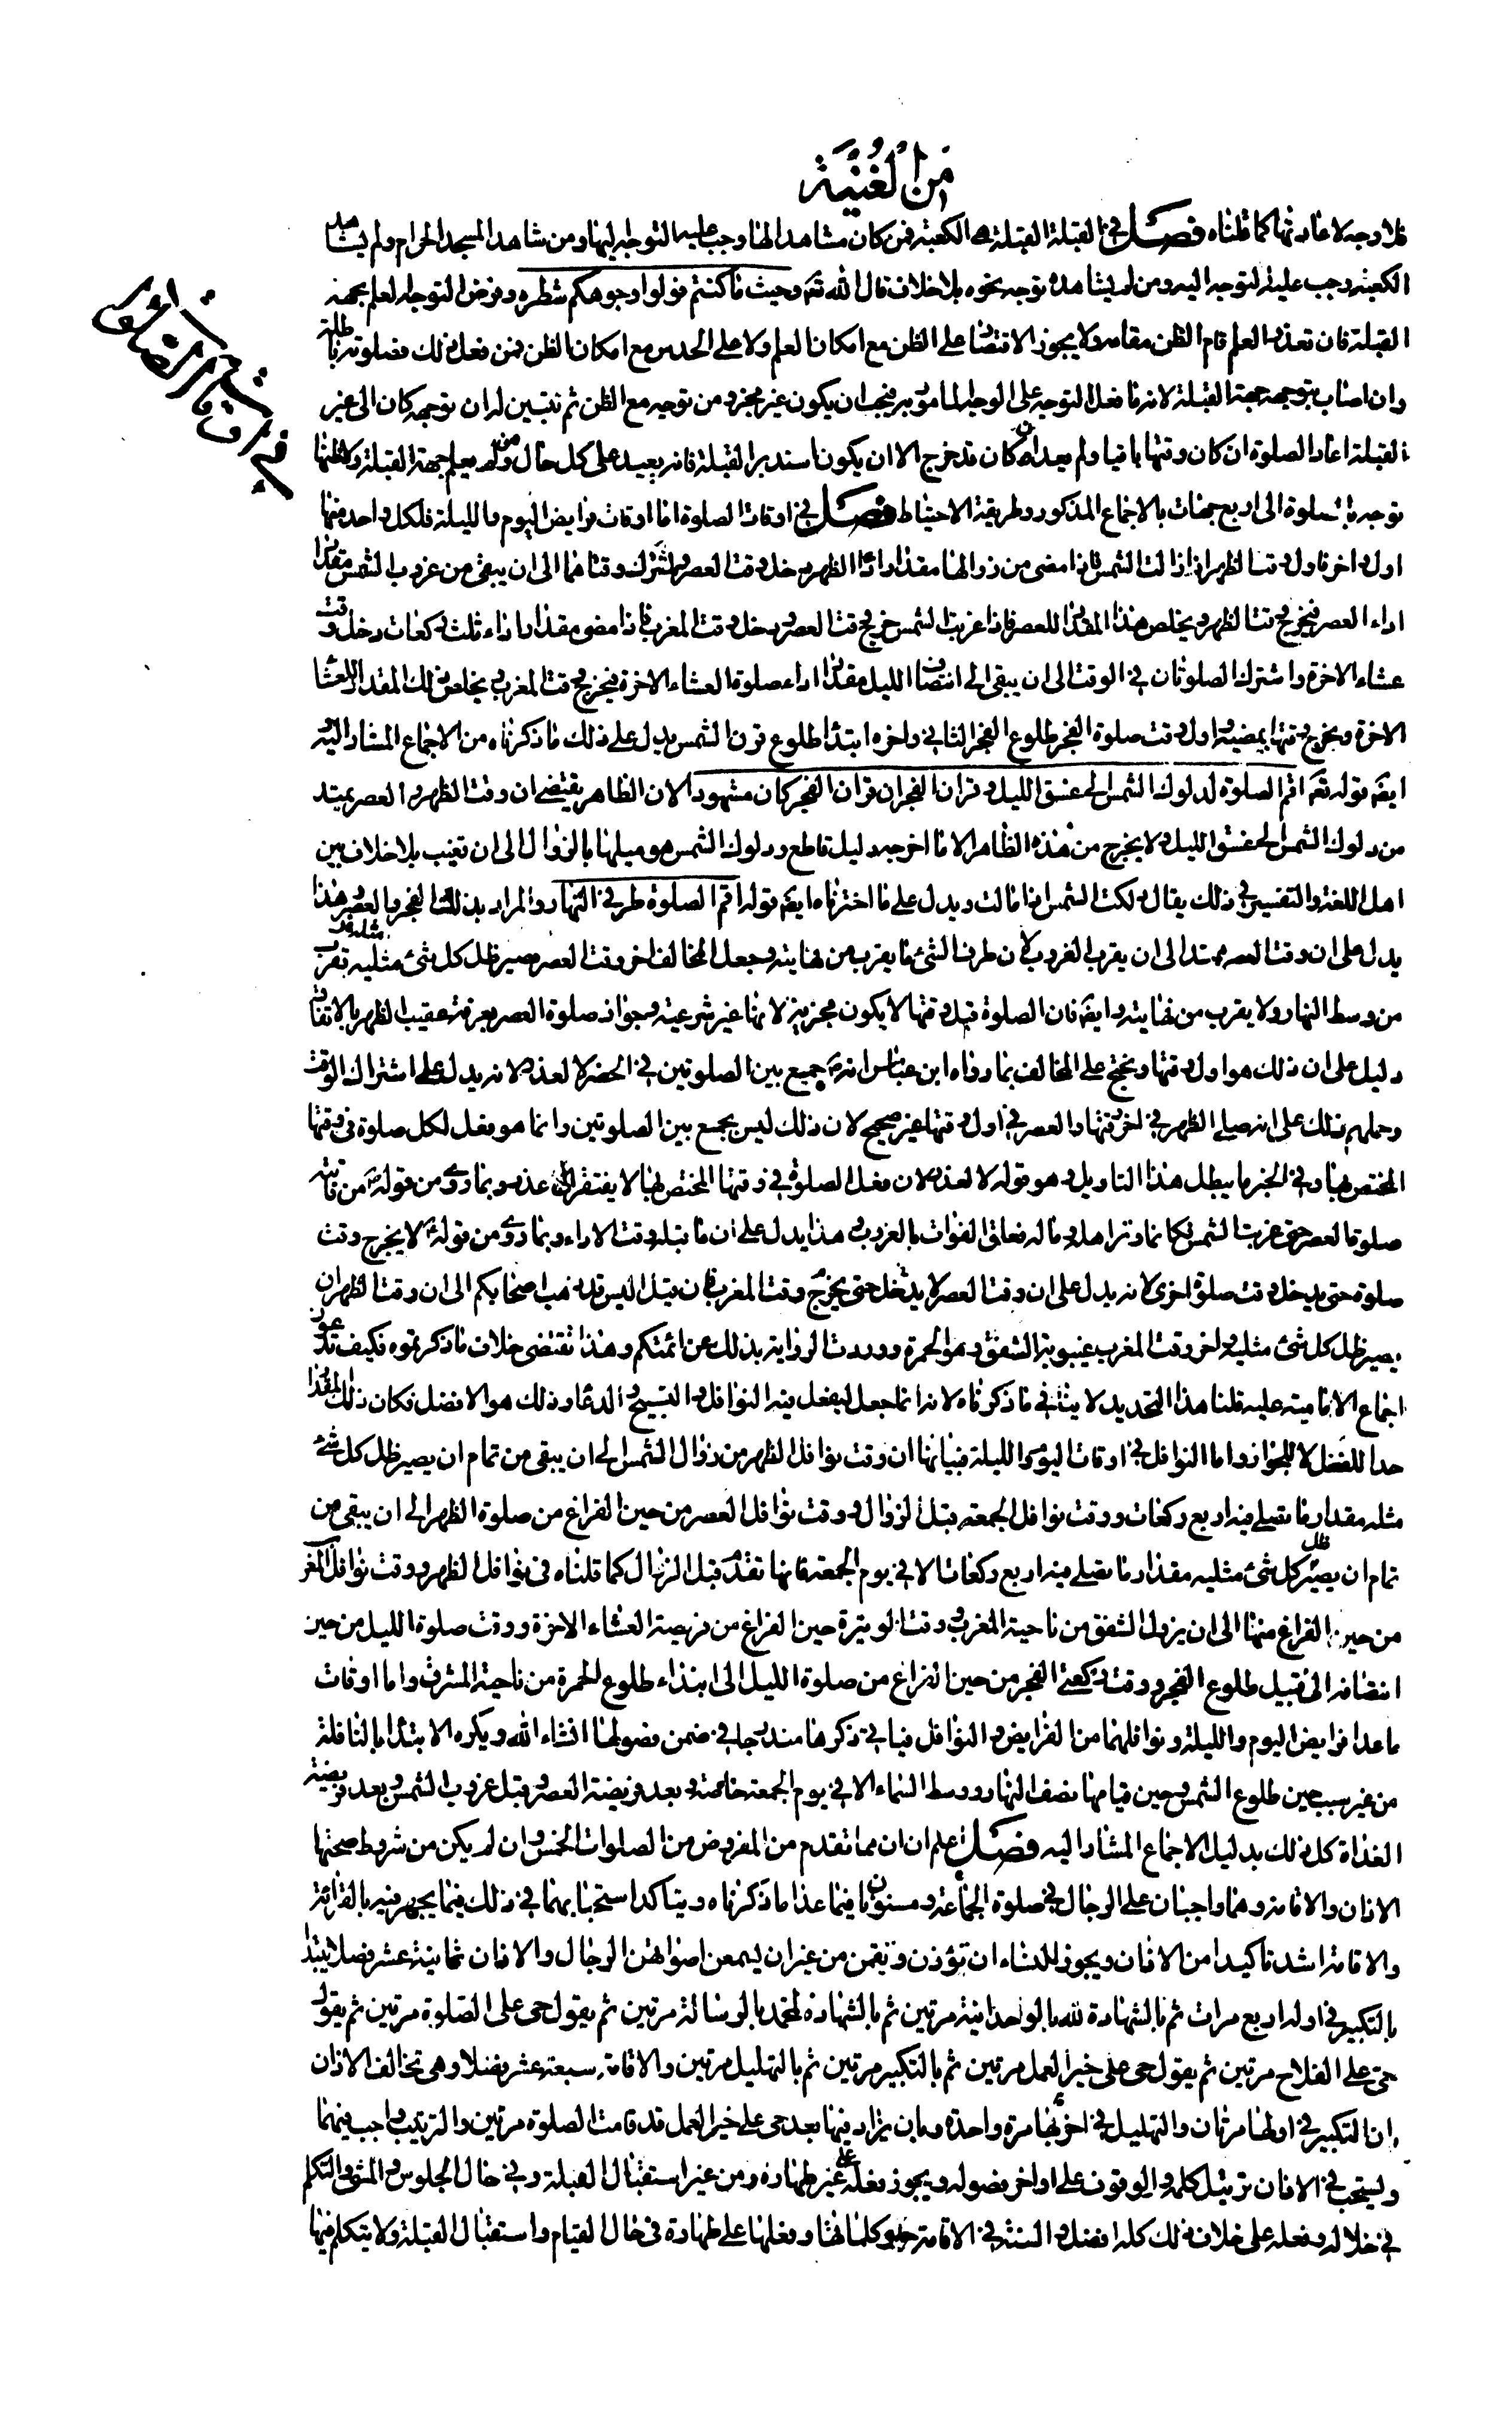 من الغنية
فلا وجه لاعادتها كما قلناه فصل في القبلة القبلة هي الكعبة فمن كان مشاهدا لها وجب عليه التوجه اليها ومن شاهد المسجد الحرام ولم يشاهد
الكعبة وجب عليه التوجه اليه ومن لم يشاهده توجه نحوه بلا خلاف قال الله تعـ وحيث ما كنتم فولوا وجوهكم شطره وفرض التوجه العلم بجهة
القبلة فان تعذر العلم قام الظن مقامه ولا يجوز الاقتصار على الظن مع امكان العلم ولا على الحدس مع امكان الظن فمن فعل ذلك فصلوته باطلة
وان اصاب بتوجهه جهة القبلة لانه ما فعل التوجه على الوجه المامور به فيجب ان يكون غير مجزء ومن توجه مع الظن ثم تبين له ان توجهه كان الى غير
القبلة اعاد الصلوة ان كان وقتها باقيا ولم يعد ان كان قد خرج الا ان يكون استدبر القبلة فانه يعيد على كل حال ومن لم يعلم جهة القبلة ولا ظنها
توجه بالصلوة الى اربع جهات بالاجماع المذكور وطريقة الاحتياط فصل في اوقات الصلوة اما اوقات فرايض اليوم والليلة فلكل واحد منها
اول واخر فاول وقت الظهر اذا زالت الشمس فاذا مضى من زوالها مقدار اداء الظهر دخل وقت العصر واشترك وقتاهما الى ان يبقى من غروب الشمس مقدار
اداء العصر فيخرج وقت الظهر ويخلص هذا المقدار للعصر فاذا غربت الشمس خرج وقت العصر ودخل وقت المغرب فاذا مضى مقدار اداء ثلث ركعات دخل وقت
عشاء الاخرة واشترك الصلوتان في الوقت الى ان يبقى الى انتصاف الليل مقدار اداء صلوة العشاء الاخرة فيخرج وقت المغرب ويخلص ذلك المقدار للعشاء
الاخرة ويخرج وقتها بمضيه واول وقت صلوة الفجر طلوع الفجر الثاني واخره ابتداء طلوع قرن الشمس يدل على ذلك ما ذكرناه من الاجماع المشار اليه
ايضـ قوله تعـ اقم الصلوة لدلوك الشمس الى غسق الليل وقران الفجر ان قران الفجر كان مشهودا لان الظاهر يقتضي ان وقت الظهر والعصر يمتد
من دلوك الشمس الى غسق الليل ولا يخرج من هذه الظاهر الا ما اخرجه دليل قاطع ودلوك الشمس هو ميلها بالزوال الى ان تغيب بلا خلاف بين
اهل اللغة والتفسير في ذلك يقال دلكت الشمس اذا مالت ويدل على ما اخترناه ايضـ قوله اقم الصلوة طرفي النهار والمراد بذلك الفجر والعصر وهذا
يدل على ان وقت العصر ممتد الى ان يقرب الغروب لان طرف الشئ ما يقرب من نهايته وجعل المخالف اخر وقت العصر مصير ظل كل شئ مثليه يقرب
من وسط النهار ولا يقرب من نهايته وايضـ فان الصلوة قبل وقتها لا يكون مجزية لانها غير شرعية وجواز صلوة العصر بعرفة عقيب الظهر بالاتفاق
دليل على ان ذلك هو اول وقتها ونحتج على المخالف بما رواه ابن عباس انه جمع بين الصلوتين في الحضر لا لعذر لانه يدل على اشتراك الوقت
وحملهم ذلك على انه صلى الظهر في اخر وقتها والعصر في اول وقتها غير صحيح لان ذلك ليس بجمع بين الصلوتين وانما هو فعل لكل صلوة في وقتها
المختص بها وفي الخبر ما يبطل هذا التاويل وهو قوله لا لعذر لان فعل الصلوة في وقتها المختص بها لا يفتقر الى عذر وبما روى من قوله من فاتته
صلوة العصر حتى غربت الشمس فكانما وتر اهله وماله فعلق الفوات بالغروب وهذا يدل على ان ما قبله وقت الاداء وبما روى من قوله لا يخرج وقت
صلوة حتى يدخل وقت صلوة اخرى لانه يدل على ان وقت العصر لا يدخل حتى يخرج وقت المغرب فان قيل اليس قد ذهب اصحابكم الى ان وقت الظهر ان
يصير ظل كل شئ مثليه واخر وقت المغرب غيبوبة الشفق وهو الحمرة ووردت الرواية بذلك عن ائمتكم وهذا تقتضي خلاف ما ذكرتموه فكيف تدعون
اجماع الامامية عليه قلنا هذا التحديد لا ينافي ما ذكرناه لانه انما جعل ليفعل فيه النوافل والتسبيح والدعاء وذلك هو الافضل فكان ذلك المقدار
حدا للفضل لا للجواز واما النوافل في اوقات اليوم والليلة فبيانها ان وقت نوافل الظهر من زوال الشمس الى ان يبقى من تمام ان يصير ظل كل شئ
مثله مقدار ما يصلى فيه اربع ركعات ووقت نوافل الجمعة قبل الزوال ووقت نوافل العصر من حين الفراغ من صلوة الظهر الى ان يبقى من
تمام ان يصير ظل كل شئ مثليه مقدار ما يصلى فيه اربع ركعات الا في يوم الجمعة فانها تقدم قبل الزوال كما قلناه في نوافل الظهر ووقت نوافل المغر
من حين الفراغ منها الى ان يزول الشفق من ناحية المغرب ووقت الوتيرة حين الفراغ من فريضة العشاء الاخرة ووقت صلوة الليل من حين
انتصافه الى قبيل طلوع الفجر ووقت ركعتي الفجر من حين الفراغ من صلوة الليل الى ابتداء طلوع الحمرة من ناحية المشرق واما اوقات
ما عدا فرايض اليوم والليلة ونوافلهما من الفرايض والنوافل فياتي ذكرها مندرجا في ضمن فصولها انشاء الله ويكره الابتداء بالنافلة
من غير سبب حين طلوع الشمس وحين قيامها نصف النهار ووسط السماء الا في يوم الجمعة خاصة وبعد فريضة العصر وقبل غروب الشمس وبعد فريضة
الغداة كل ذلك بدليل الاجماع المشار اليه فصل اعلم ان مما تقدم من المفروض من الصلوات الخمس وان لم يكن من شروط صحتها
الاذان والاقامة وهما واجبان على الرجال في صلوة الجماعة ومسنونان فيما عدا ما ذكرناه ويتاكد استحبابهما في ذلك فيما يجهر فيه بالقرائة
والاقامة اشد تاكيدا من الاذان ويجوز للنساء ان تؤذن وتقمن من غير ان يسمعن اصواتهن الرجال والاذان ثمانية عشر فصلا يبتدا
بالتكبير في اوله اربع مرات ثم بالشهادة لله بالوحدانية مرتين ثم بالشهادة لمحمد بالرسالة مرتين ثم يقول حي على الصلوة مرتين ثم يقول
حي على الفلاح مرتين ثم يقول حي على خير العمل مرتين ثم بالتكبير مرتين ثم بالتهليل مرتين والاقامة سبعة عشر فصلا وهي تخالف الاذان
بان التكبير في اولها مرتان والتهليل في اخرها مرة واحدة وبان يزاد فيها بعد حي على خير العمل قد قامت الصلوة مرتين والترتيب واجب فيهما
ويستحب في الاذان ترتيل كلمه والوقوف على اواخر فصوله ويجوز فعله على غير طهارة ومن غير استقبال القبلة وفي حال الجلوس والمشي والتكلم
في خلاله وفعله على خلاف ذلك كله افضل والسنة في الاقامة حدر كلماتها وفعلها على طهارة في حال القيام واستقبال القبلة ولا يتكلم فيها